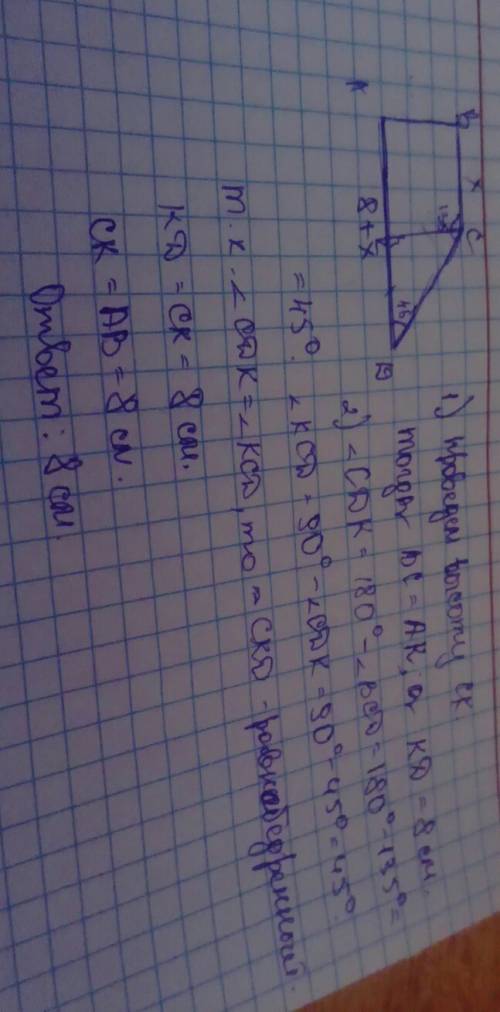 B x C
135°
A 8+x D
45°
1) Проведем высоту CK.
тогда BC = AK, а KD = 8 см.
2) ∠CDK = 180° - ∠BCD = 180° - 135° =
= 45°. ∠KCD = 90° - ∠CDK = 90° - 45° = 45°.
т.к. ∠CDK = ∠KCD, то ▵ CKD - равнобедренный.
KD = CK = 8 см.
CK = AB = 8 см.
Ответ: 8 см.